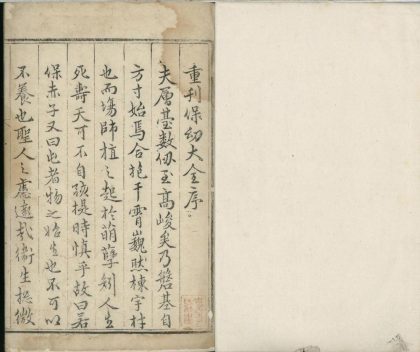 重刊保幼大全序
夫層臺數仞至高峻矣乃簷基自
方寸始焉合抱干霄巍然棟宇材
也而場師植之起於萌蘖矧人生
死壽夭可不自孩提時慎乎故曰若
保赤子又曰蒙者物之始生也不可以
不養也聖人之慮遠哉衛生於微